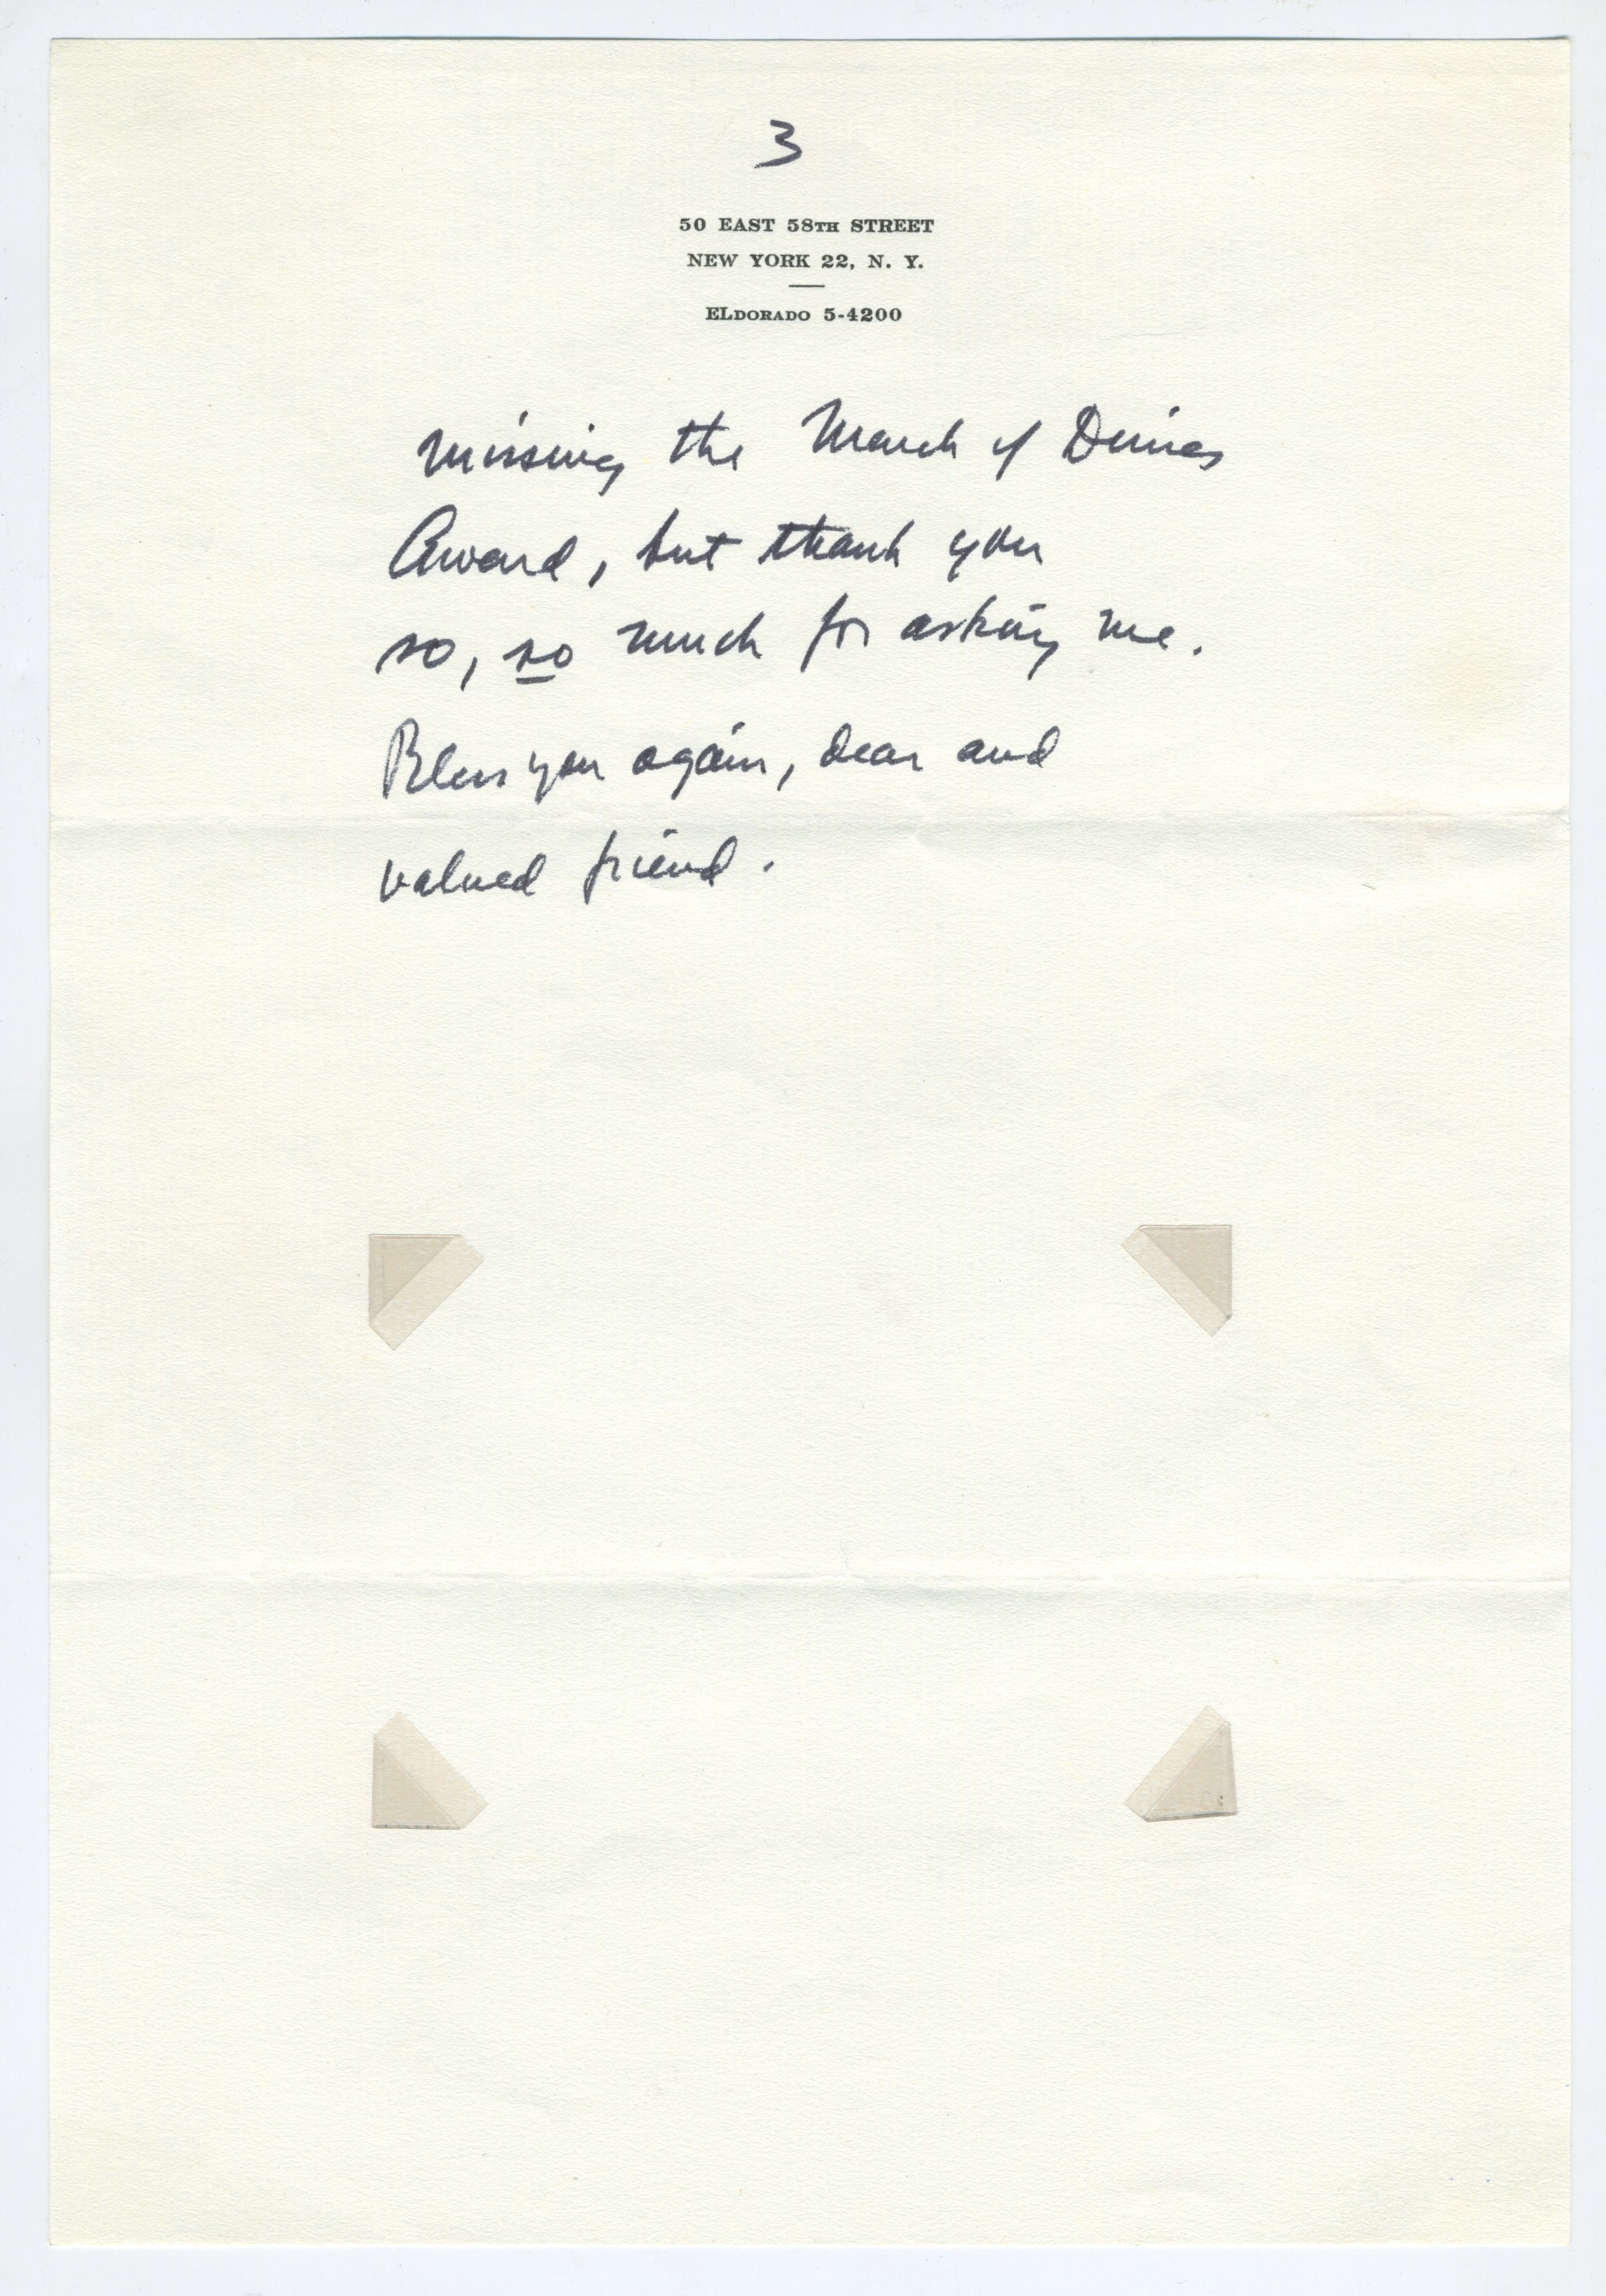 3
50 EAST 58TH STREET
NEW YORK 22, N. Y.
ELDORADO 5-4200
missing the March of Dimes
Award, but thank you
so, so much for asking me.
Bless you again, dear and
valued friend.